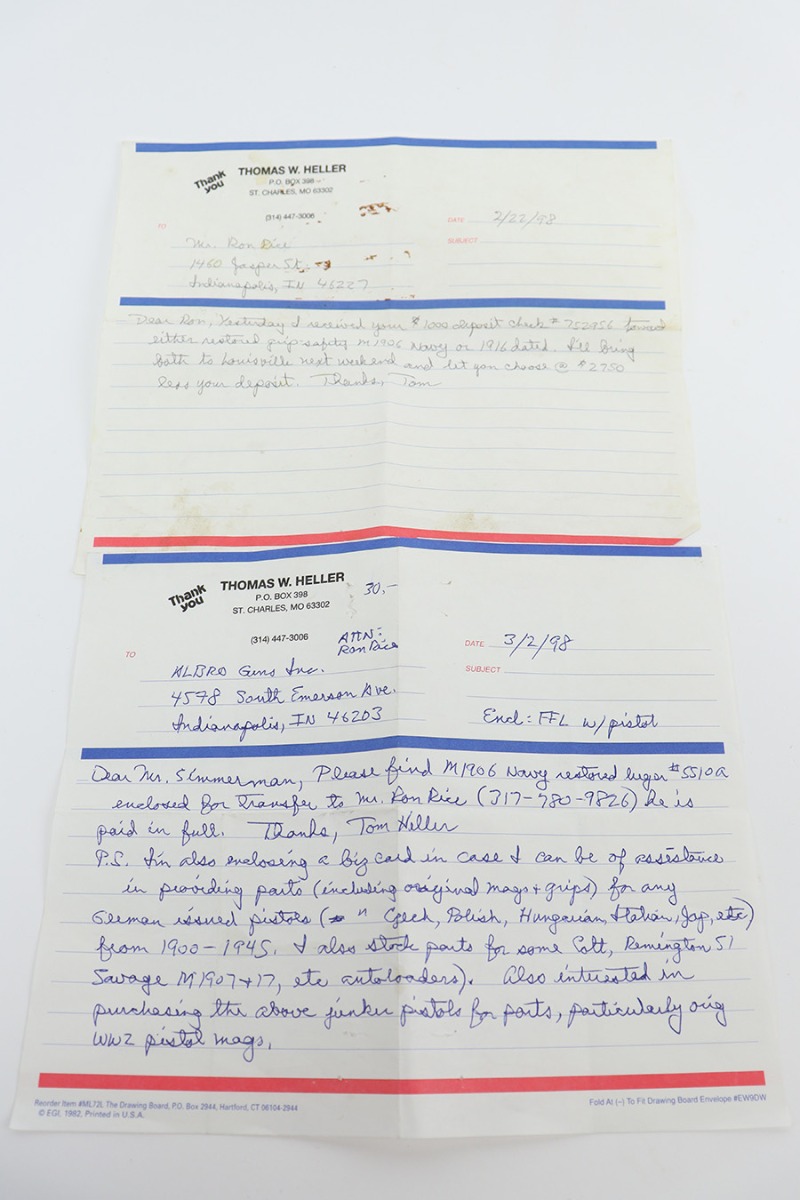 Thank you
THOMAS W. HELLER
P.O. BOX 398
ST. CHARLES, MO 63302
(314) 447-3006
DATE 2/22/98
TO
SUBJECT
Mr. Ron Rice
1460 Jasper St.
Indianapolis, IN 46227
Dear Ron, Yesterday I received your $1000 deposit check # 752956 toward
either restored grip safety M1906 Navy or 1916 dated. I'll bring
both to Louisville next weekend and let you choose @ $2750
less your deposit. Thanks, Tom
Thank you
THOMAS W. HELLER
P.O. BOX 398
ST. CHARLES, MO 63302
30,-
(314) 447-3006
ATTN: Ron Rice
DATE 3/2/98
TO
SUBJECT
ALBRO Guns Inc.
4578 South Emerson Ave.
Indianapolis, IN 46203
Encl: FFL w/pistol
Dear Mr. Simmerman, Please find M1906 Navy restored luger #5510a
enclosed for transfer to Mr. Ron Rice (317-780-9826) he is
paid in full. Thanks, Tom Heller
P.S. I'm also enclosing a biz card in case I can be of assistance
in providing parts (including original mags + grips) for any
German issued pistols ( " Czech, Polish, Hungarian, Italian, Jap, etc)
from 1900-1945. I also stock parts for some Colt, Remington 51
Savage M1907+17, etc autoloaders). Also interested in
purchasing the above junker pistols for parts, particularly orig
WW2 pistol mags.
Reorder Item #ML72L The Drawing Board, P.O. Box 2944, Hartford, CT 06104-2944
© EGI, 1982, Printed in U.S.A.
Fold At (–) To Fit Drawing Board Envelope #EW9DW